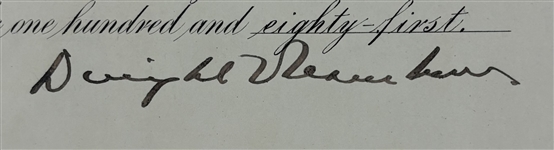 one hundred and eighty-first.
Dwight D Eisenhower